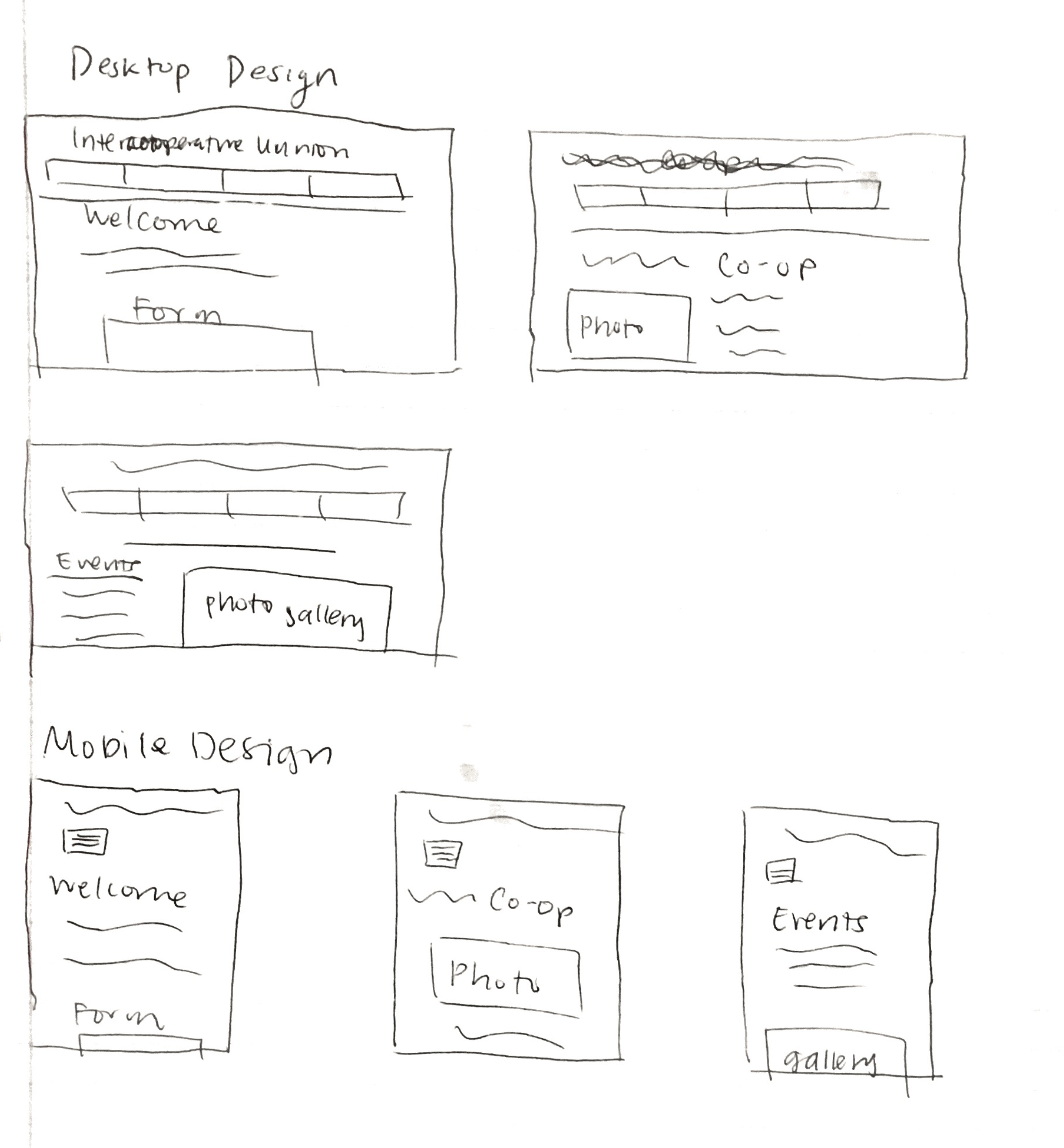 Desktop Design
Intercooperative Uunion
Welcome
Form
Co-op
Photo
Events
photo gallery
Mobile Design
Welcome
Form
Co-op
Photo
Events
gallery